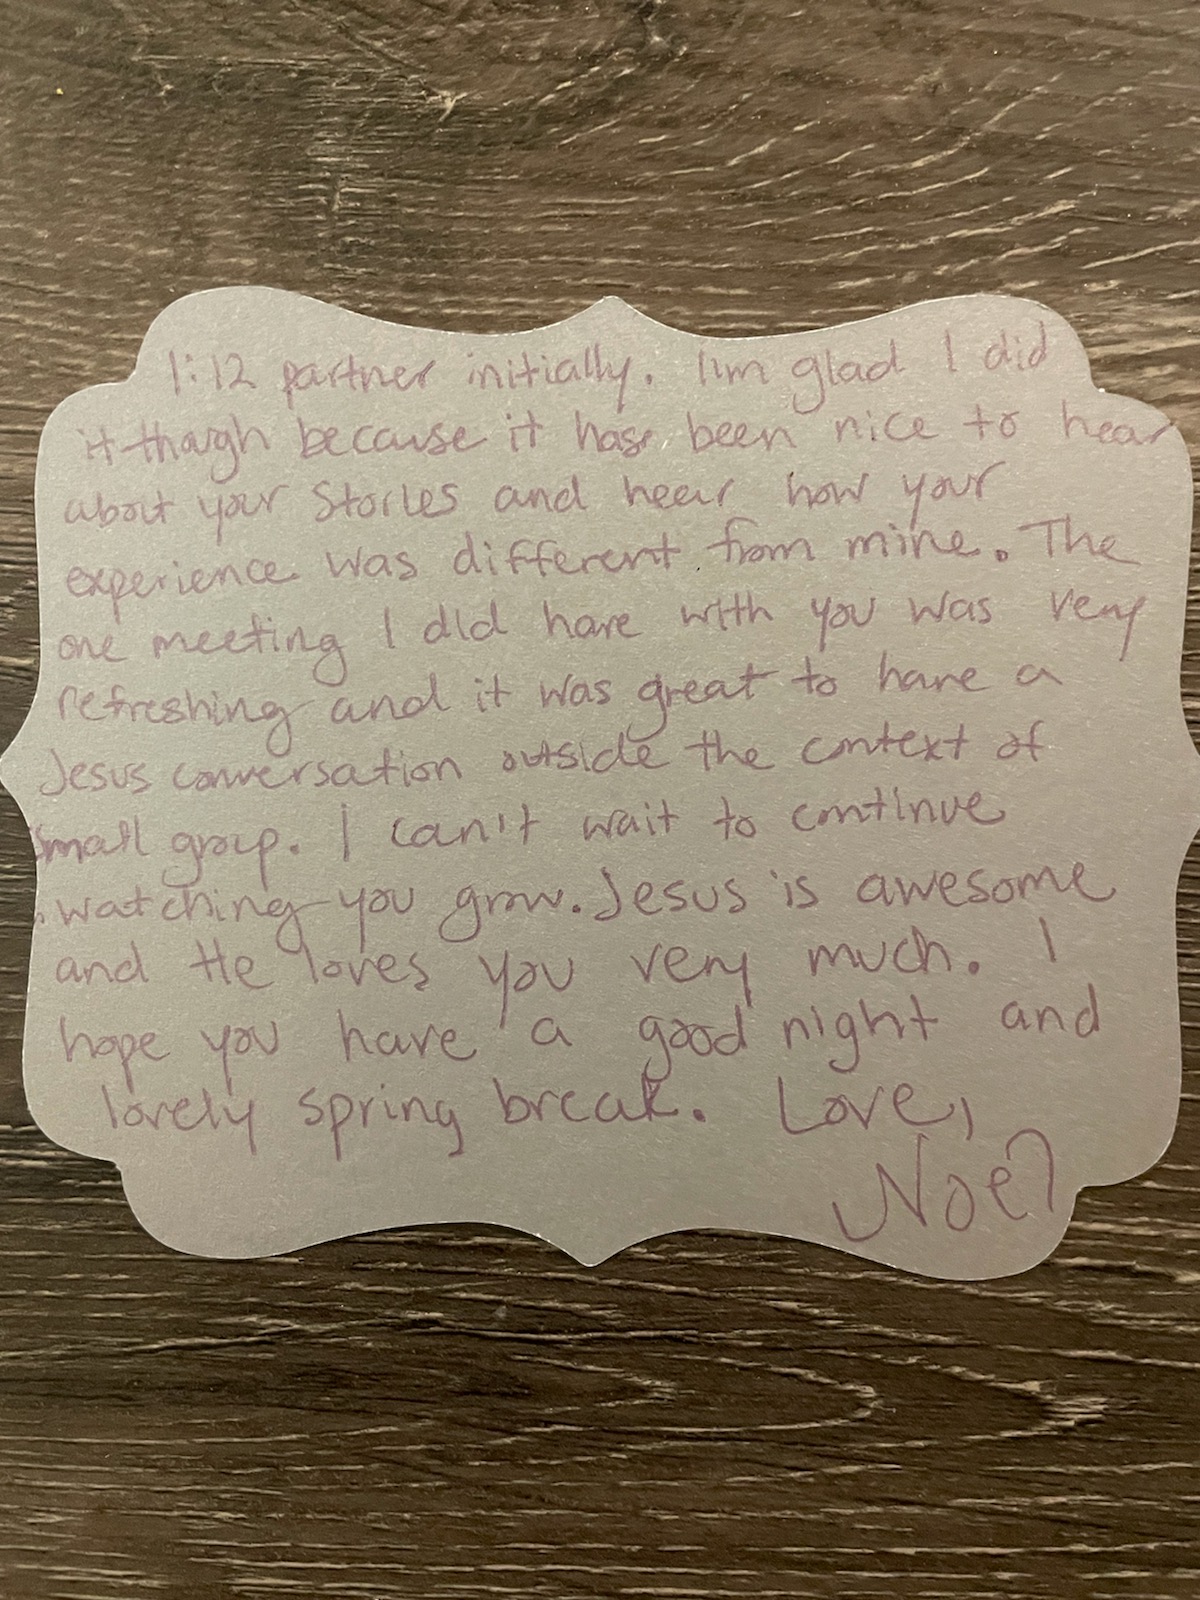 1:12 partner initially. I'm glad I did
it though because it has been nice to hear
about your stories and hear how your
experience was different from mine. The
one meeting I did have with you was very
refreshing and it was great to have a
Jesus conversation outside the context of
small group. I can't wait to continue
watching you grow. Jesus is awesome
and He loves you very much. I
hope you have a good night and
lovely spring break. Love,
Noel